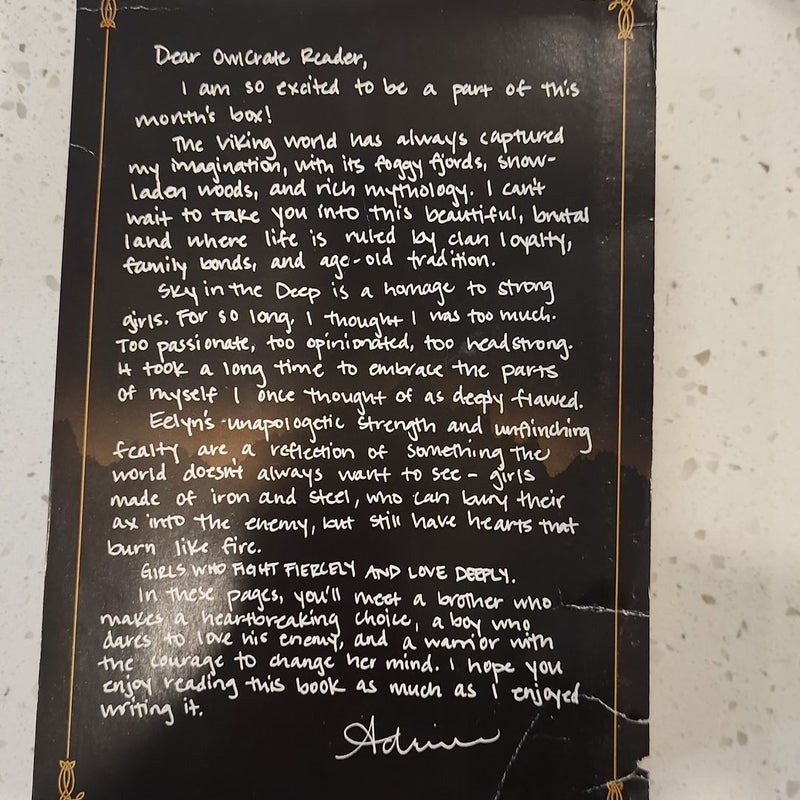 Dear OwlCrate Reader,
I am so excited to be a part of this
month's box!
The Viking world has always captured
my imagination, with its foggy fjords, snow-
laden woods, and rich mythology. I can't
wait to take you into this beautiful, brutal
land where life is ruled by clan loyalty,
family bonds, and age-old tradition.
Sky in the Deep is a homage to strong
girls. For so long, I thought I was too much.
Too passionate, too opinionated, too headstrong.
It took a long time to embrace the parts
of myself I once thought of as deeply flawed.
Eelyn's unapologetic strength and unflinching
fealty are a reflection of something the
world doesn't always want to see - girls
made of iron and steel, who can bury their
ax into the enemy, but still have hearts that
burn like fire.
GIRLS WHO FIGHT FIERCELY AND LOVE DEEPLY.
In these pages, you'll meet a brother who
makes a heartbreaking choice, a boy who
dares to love his enemy, and a warrior with
the courage to change her mind. I hope you
enjoy reading this book as much as I enjoyed
writing it.
Adrienne